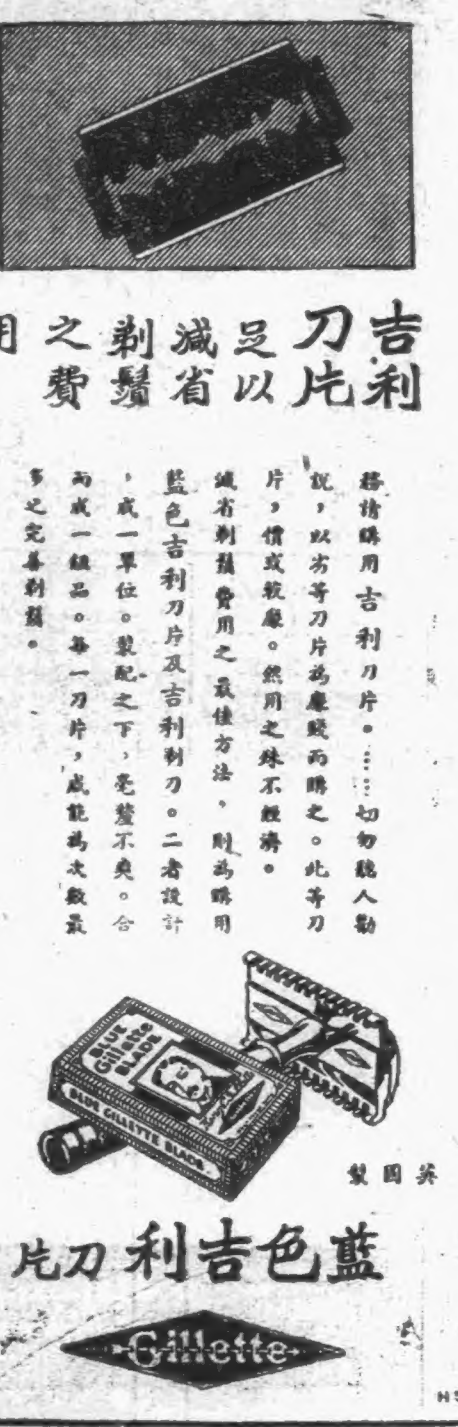 吉利
刀片
足以
減省
剃鬚
之費
用
務請購用吉利刀片。……切勿聽人勸
說,以劣等刀片為廉賤而購之。此等刀
片,價或較廉。然用之殊不經濟。
減省剃鬚費用之最佳方法,則為購用
藍色吉利刀片及吉利剃刀。二者設計
,成一單位。裝配之下,毫釐不爽。合
而成一組品。每一刀片,咸能為次數最
多之完善剃鬚。
BLUE
Gillette
BLADE
BLUE GILLETTE BLADE
英國製
藍色吉利刀片
Gillette